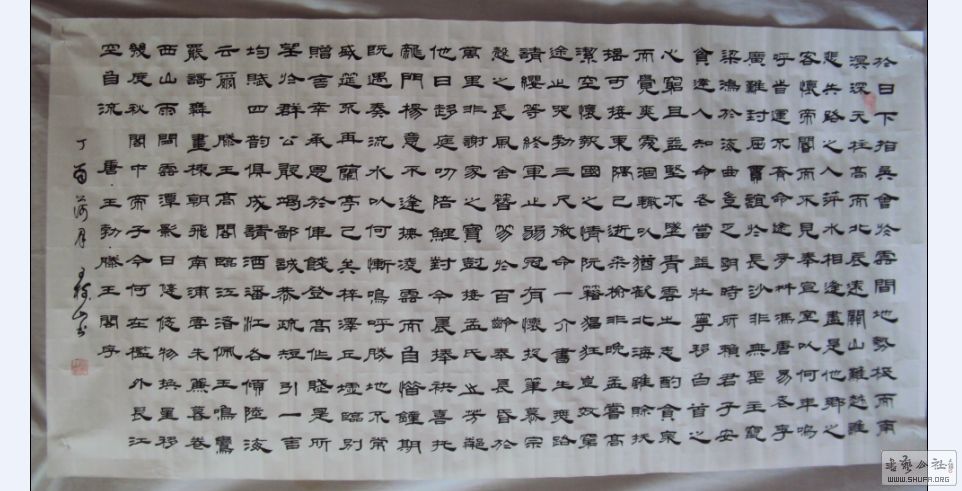 於日下指吳會於雲間地勢極而南
溟深天柱高而北辰遠關山難越誰
悲失路之人萍水相逢盡是他鄉之
客懷帝閽而不見奉宣室以何年嗚
呼時運不齊命途多舛馮唐易老李
廣難封屈賈誼於長沙非無聖主竄
梁鴻於海曲豈乏明時所賴君子安
貧達人知命老當益壯寧移白首之
心窮且益堅不墜青雲之志酌貪泉
而覺爽處涸轍以猶歡北海雖賒扶
搖可接東隅已逝桑榆非晚孟嘗高
潔空懷報國之情阮籍猖狂豈效窮
途之哭勃三尺微命一介書生無路
請纓等終軍之弱冠有懷投筆慕宗
愨之長風舍簪笏於百齡奉晨昏於
萬里非謝家之寶樹接孟氏之芳鄰
他日趨庭叨陪鯉對今晨捧袂喜托
龍門楊意不逢撫凌雲而自惜鐘期
既遇奏流水以何慚嗚呼勝地不常
盛筵不再蘭亭已矣梓澤丘墟臨別
贈言幸承恩於偉餞登高作賦是所
望於群公敢竭鄙誠恭疏短引一言
均賦四韻俱成請洒潘江各傾陸海
云爾 滕王高閣臨江渚佩玉鳴鸞
罷歌舞畫棟朝飛南浦雲朱簾暮卷
西山雨閒雲潭影日悠悠物換星移
幾度秋閣中帝子今何在檻外長江
空自流 唐·王勃·滕王閣序
丁酉荷月 書
WWW.SHUFA.ORG